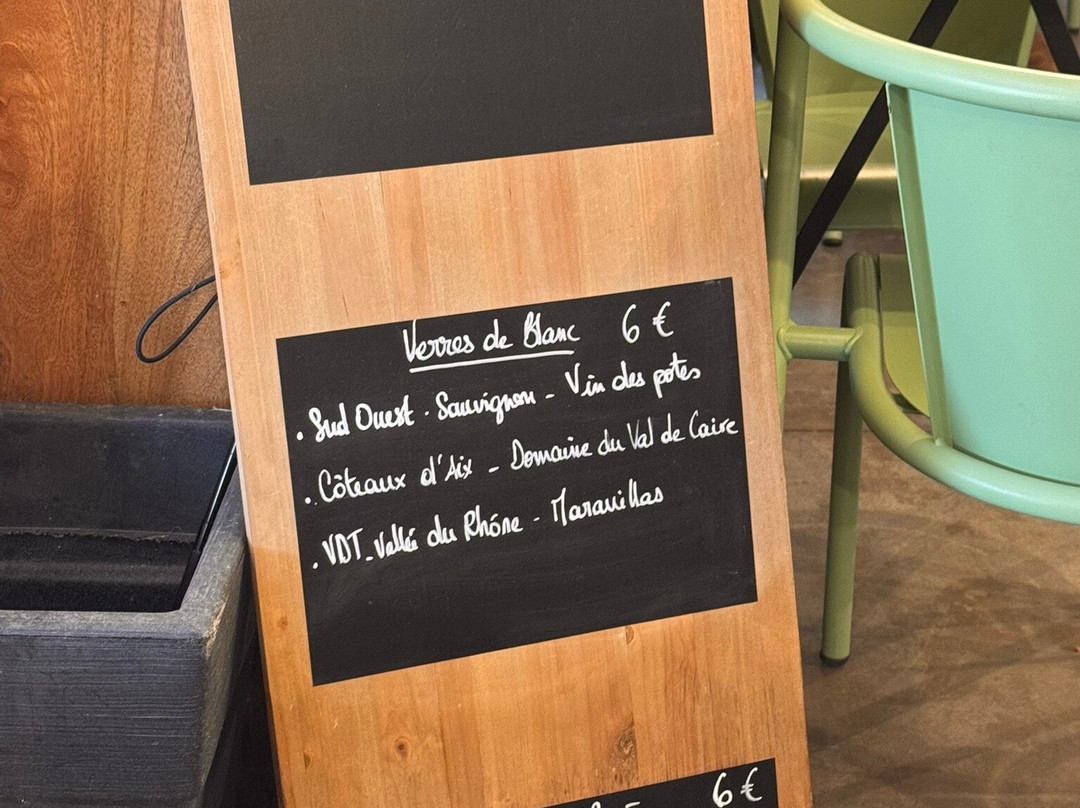 Verres de Blanc 6 €
. Sud Ouest . Sauvignon - Vin des potes
. Côteaux d'Aix - Domaine du Val de Caire
. VDT - Vallée du Rhône - Maravillas
6 €